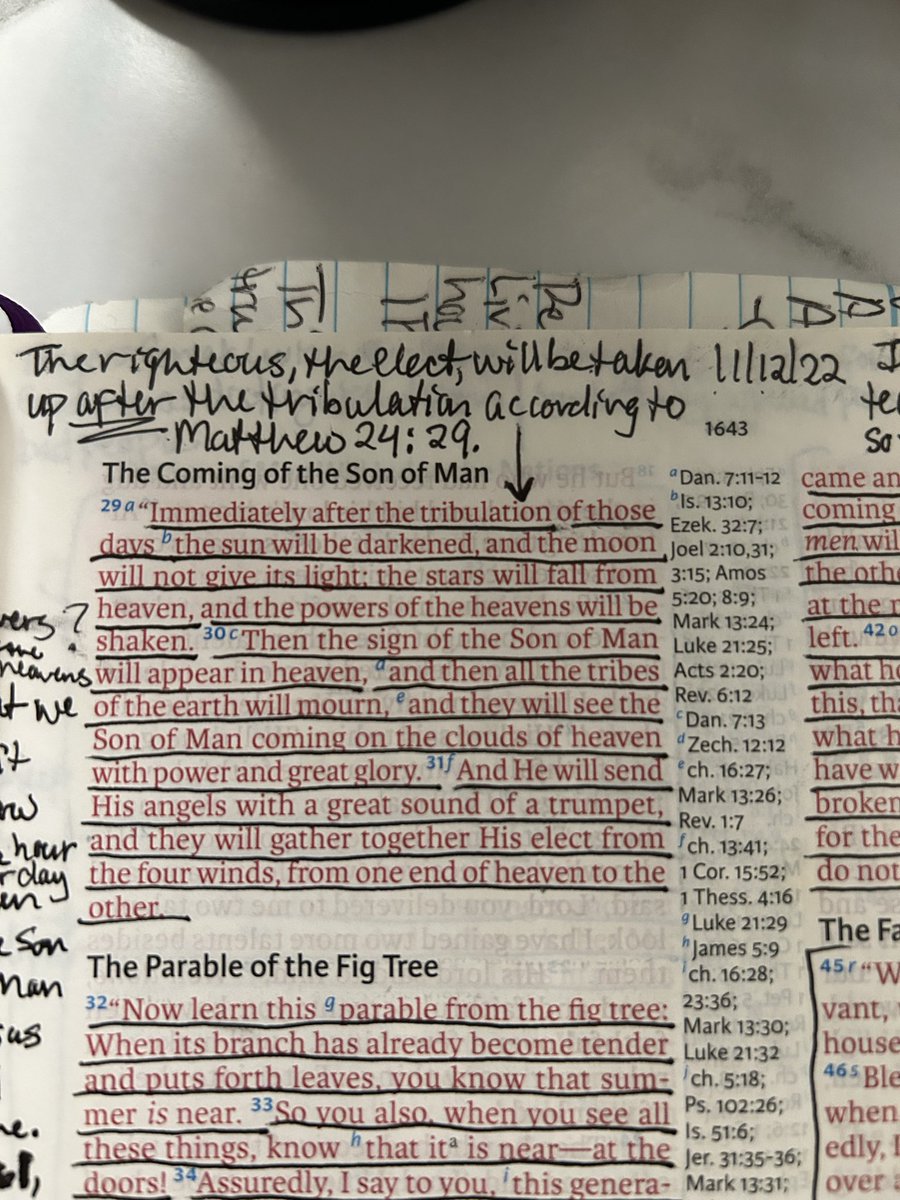 The righteous, the elect, will be taken 11/12/22
up after the tribulation according to
Matthew 24:29.
1643
The Coming of the Son of Man
29 a "Immediately after the tribulation of those
days b the sun will be darkened, and the moon
will not give its light; the stars will fall from
heaven, and the powers of the heavens will be
shaken. 30 c Then the sign of the Son of Man
will appear in heaven, d and then all the tribes
of the earth will mourn, e and they will see the
Son of Man coming on the clouds of heaven
with power and great glory. 31 f And He will send
His angels with a great sound of a trumpet,
and they will gather together His elect from
the four winds, from one end of heaven to the
other.
The Parable of the Fig Tree
32 "Now learn this g parable from the fig tree:
When its branch has already become tender
and puts forth leaves, you know that sum-
mer is near. 33 So you also, when you see all
these things, know h that it a is near—at the
doors! 34 Assuredly, I say to you, i this genera-
a Dan. 7:11-12
b Is. 13:10;
Ezek. 32:7;
Joel 2:10,31;
3:15; Amos
5:20; 8:9;
Mark 13:24;
Luke 21:25;
Acts 2:20;
Rev. 6:12
c Dan. 7:13
d Zech. 12:12
e ch. 16:27;
Mark 13:26;
Rev. 1:7
f ch. 13:41;
1 Cor. 15:52;
1 Thess. 4:16
g Luke 21:29
h James 5:9
i ch. 16:28;
23:36;
Mark 13:30;
Luke 21:32
j ch. 5:18;
Ps. 102:26;
Is. 51:6;
Jer. 31:35-36;
Mark 13:31;
came an
coming
men wil
the oth
at the
left. 42 o
what h
this, th
what h
have w
broken
for the
do not
The Fa
45 r "W
vant,
house
46 s Ble
when
edly, I
over a
heavens
we
hour
day
Son
Man